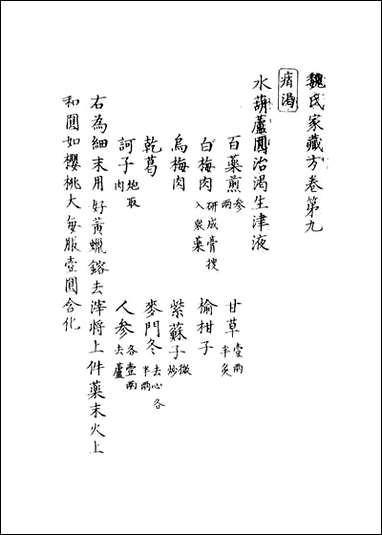 魏氏家藏方卷第九
痟渴
水葫蘆圓治渴生津液
百藥煎叁兩 甘草壹兩半炙
白梅肉研成膏搜入衆藥 偷柑子
烏梅肉 紫蘇子微炒
乾葛 麥門冬去心各半兩
訶子炮取肉 人參去蘆各壹兩
右為細末用好黃蠟鎔去滓將上件藥末火上
和圓如櫻桃大每服壹圓含化